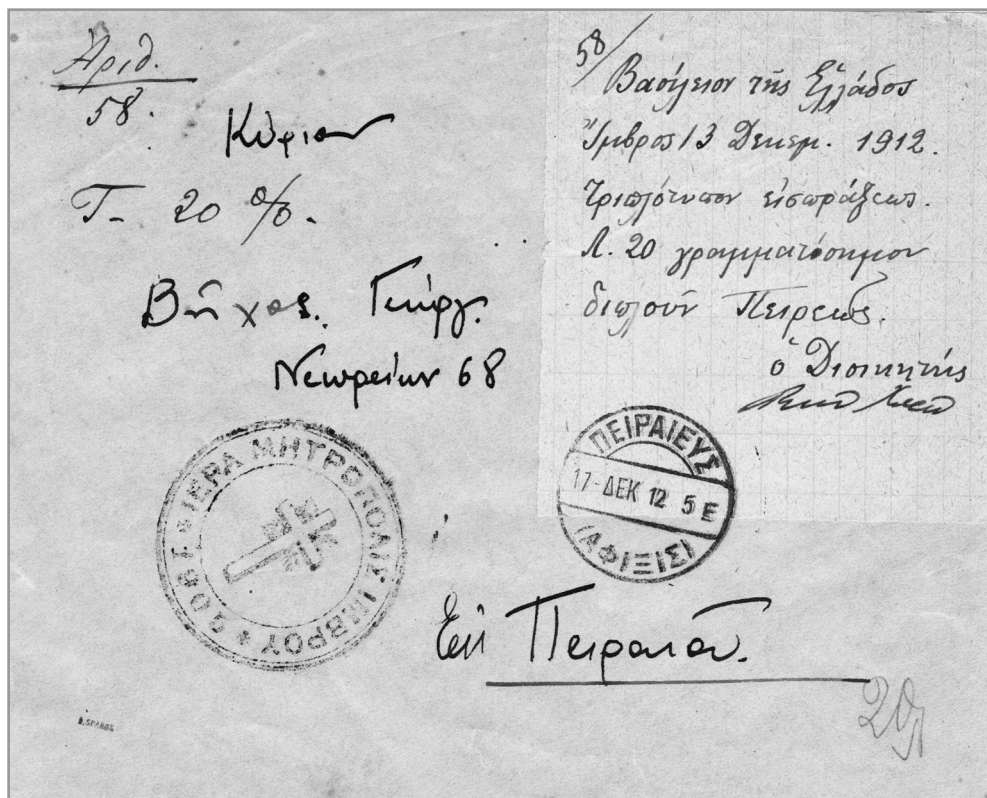 Ἀριθ.
58.
Κύριον
Τ- 20 %.
Βῆχος. Γεώργ.
Νεωρείων 68
58/
Βασίλειον τῆς Ἑλλάδος
Ἴμβρος 13 Δεκεμ. 1912.
Τριπλότυπον εἰσπράξεως.
Λ. 20 γραμματόσημον
διπλοῦν Πειρεῶς.
ὁ Διοικητής
ΠΕΙΡΑΙΕΥΣ
17-ΔΕΚ 12 5 Ε
(ΑΦΙΞΙΣ)
ΙΕΡΑ ΜΗΤΡΟΠΟΛΙΣ ΙΜΒΡΟΥ
Πειραιᾶ.
20λ